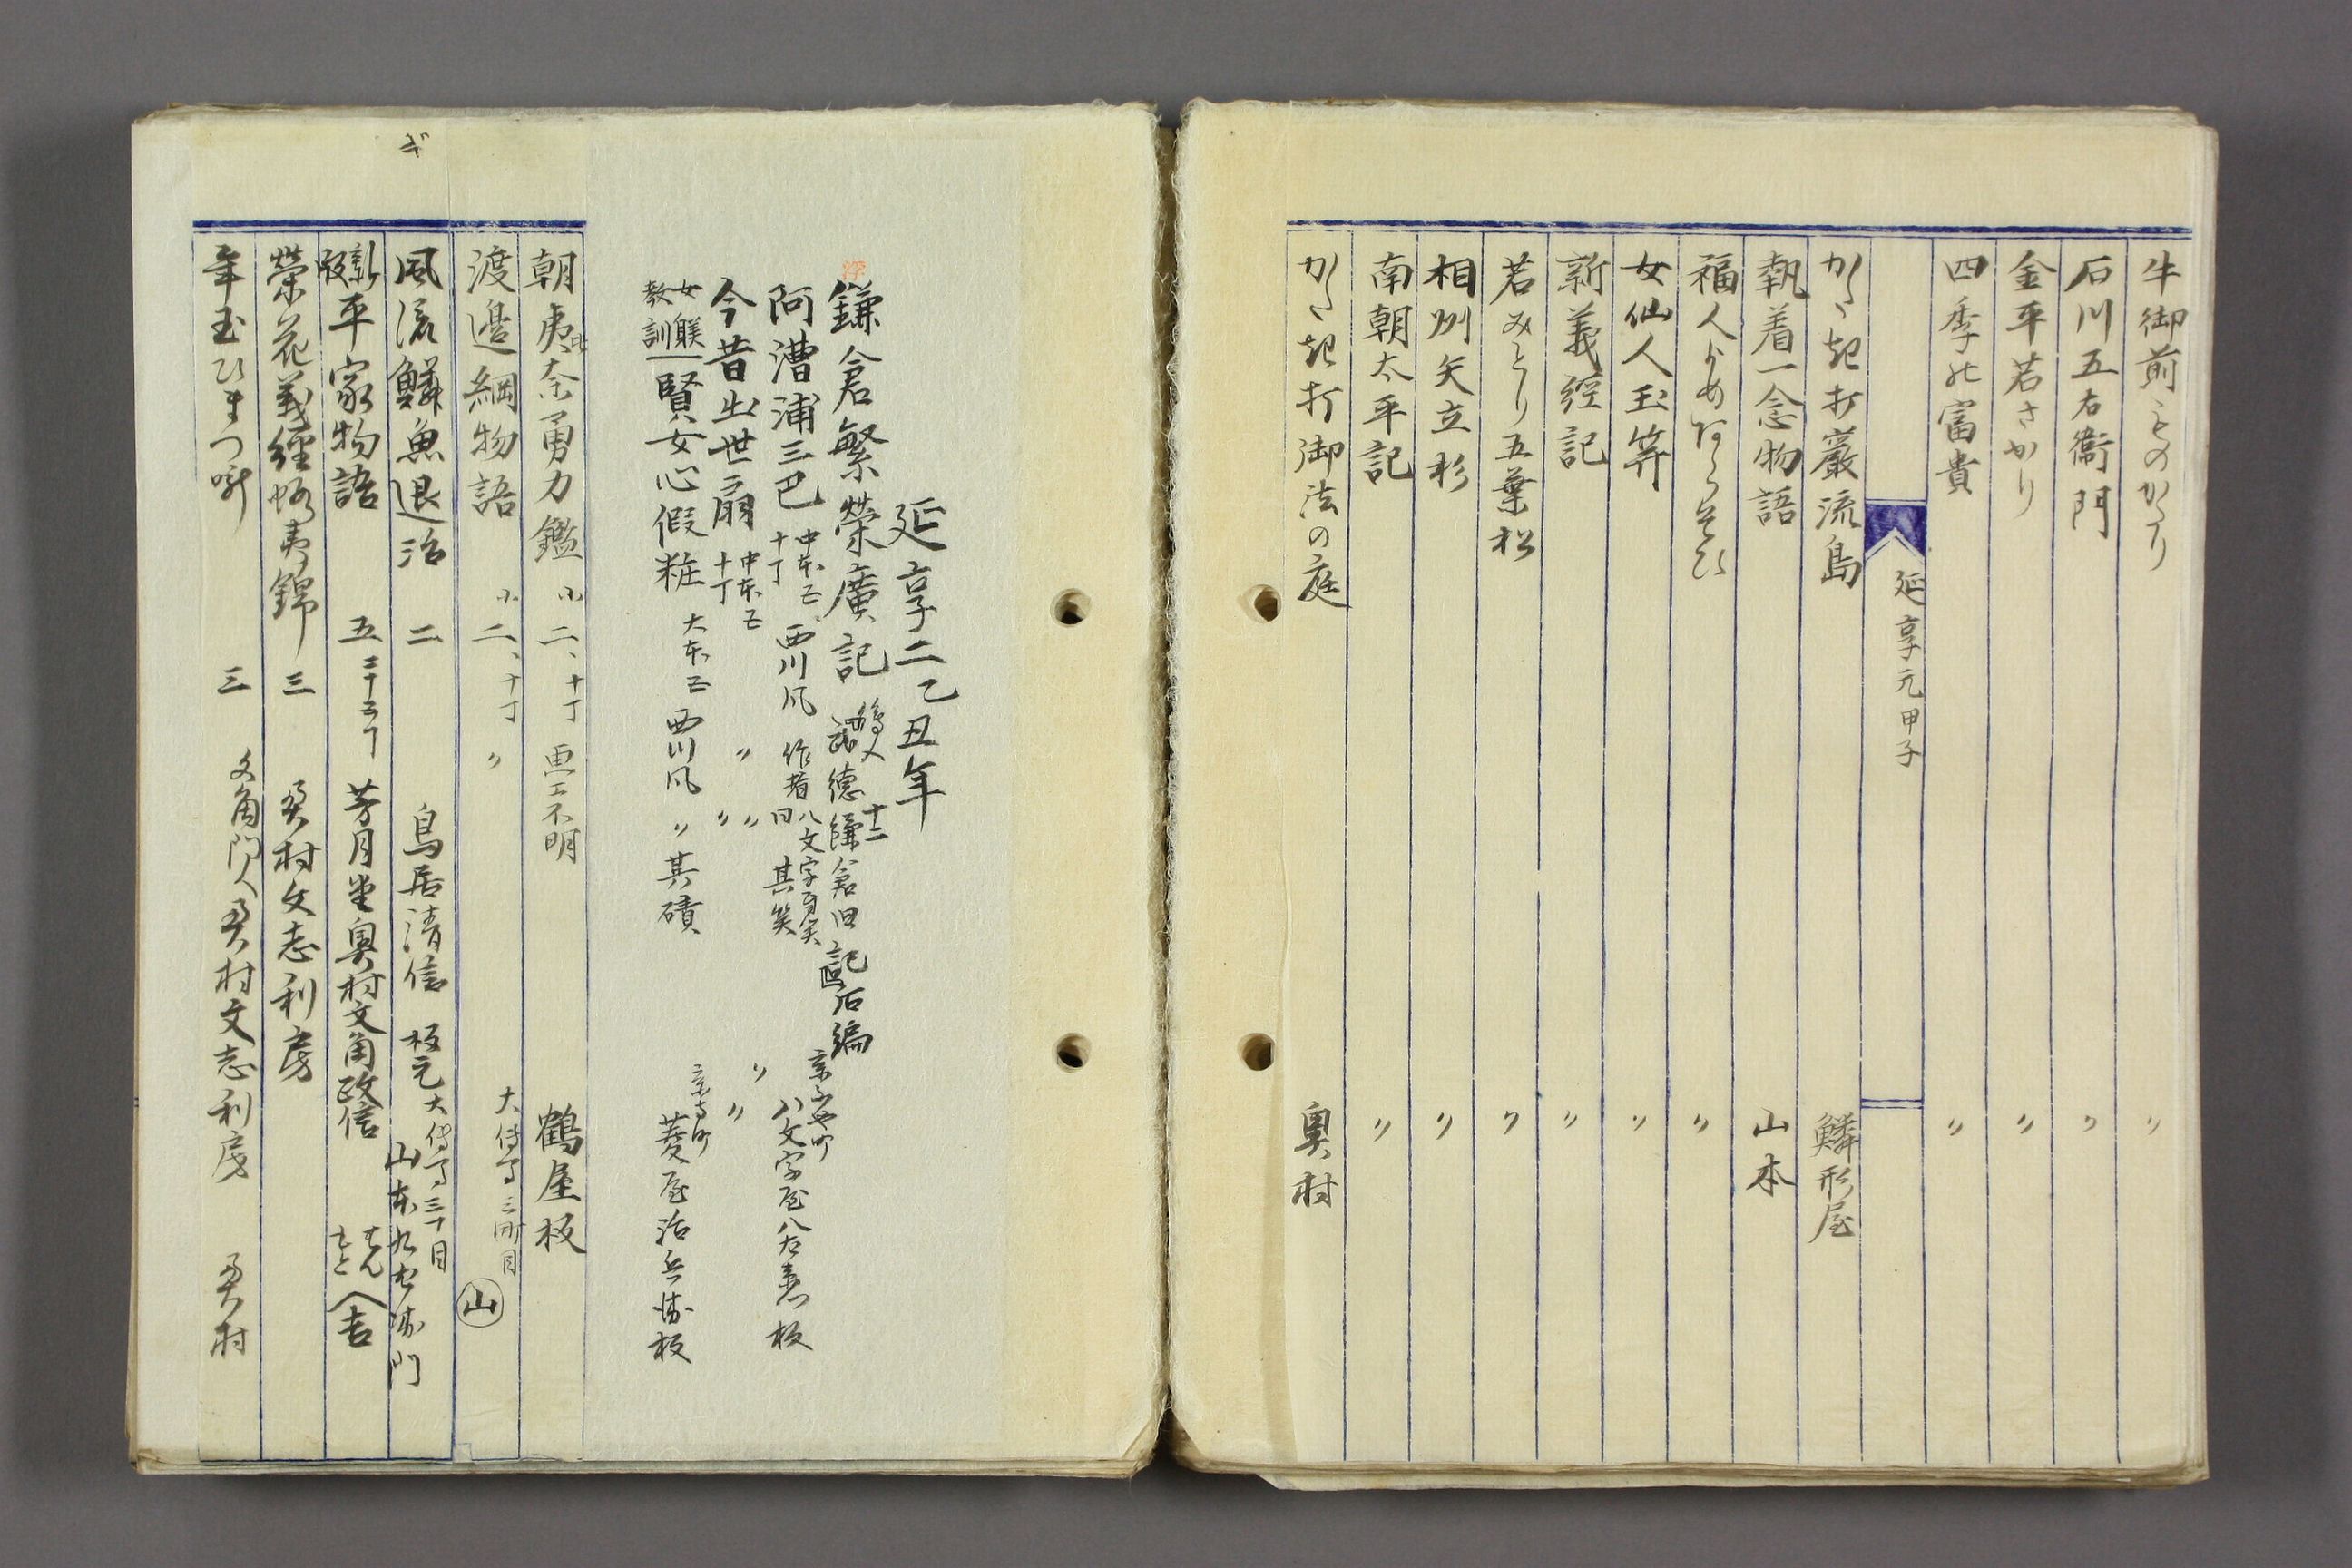 牛御前そのかたり 〃
石川五右衛門 〃
金平若さかり 〃
四季の富貴 〃
延享元甲子
かたき打巌流島 鱗形屋
執着一念物語 山本
福人よめあらそひ 〃
女仙人玉笄 〃
新義経記 〃
若みとり五葉松 〃
相州矢立杉 〃
南朝太平記 〃
かたき打御法の庭 奥村
延享二乙丑年
浮
鎌倉繁栄廣記 十二 徳鎌倉旧記 石編
阿漕浦三巴 中本五 十丁 西川風 作者八文字自笑 同其笑 八文字屋八左衛門板
今昔出世扇 中本五 十丁 〃 〃 〃 〃 〃
女朕教訓 賢女心假粧 大本五 西川風 〃其磧 京寺町 菱屋治兵衛板
朝夷奈勇力鑑 小二、十丁 画工不明 鶴屋板
渡邉綱物語 小二、十丁 〃 大伝馬三町目 山
ぎ
風流鱗魚退治 二 鳥居清信 板元大伝馬三丁目 山本九左衛門
新版平家物語 五 二十五丁 芳月堂奥村文角政信 はんもと 吉
栄花義経蝦夷錦 三 奥村文志利房
年玉ひまつ噺 三 文角門人奥村文志利房 奥村